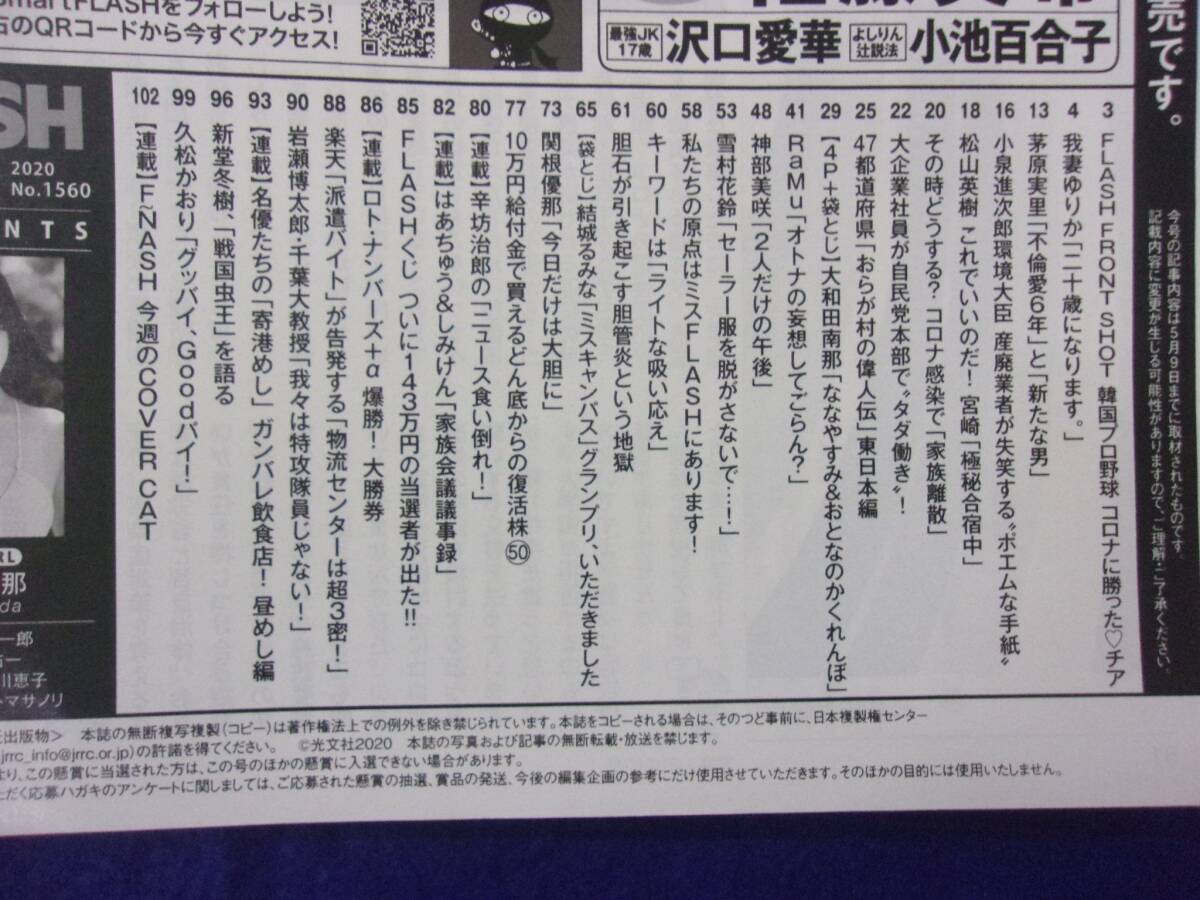 smartFLASHをフォローしよう!
右のQRコードから今すぐアクセス!
最強JK
17歳
沢口愛華
よしりん
辻説法
小池百合子
売です。
今号の記事内容は5月9日までに取材されたものです。
記載内容に変更が生じる可能性がありますので、ご理解・ご了承ください。
SH
2020
No.1560
NTS
3 FLASH FRONT SHOT 韓国プロ野球 コロナに勝った♡チア
4 我妻ゆりか「二十歳になります。」
13 茅原実里「不倫愛6年」と「新たな男」
16 小泉進次郎環境大臣 産廃業者が失笑する〝ポエムな手紙〟
18 松山英樹 これでいいのだ! 宮崎「極秘合宿中」
20 その時どうする? コロナ感染で「家族離散」
22 大企業社員が自民党本部で〝タダ働き〟!
25 47都道府県「おらが村の偉人伝」東日本編
29 【4P+袋とじ】大和田南那「ななやすみ&おとなのかくれんぼ」
41 RaMu「オトナの妄想してごらん?」
48 神部美咲「2人だけの午後」
53 雪村花鈴「セーラー服を脱がさないで…!」
58 私たちの原点はミスFLASHにあります!
60 キーワードは「ライトな吸い応え」
61 胆石が引き起こす胆管炎という地獄
65 【袋とじ】結城るみな「ミスキャンパス」グランプリ、いただきました
73 関根優那「今日だけは大胆に」
77 10万円給付金で買えるどん底からの復活株㊿
80 【連載】辛坊治郎の「ニュース食い倒れ!」
82 【連載】はあちゅう&しみけん「家族会議議事録」
85 FLASHくじ ついに143万円の当選者が出た!!
86 【連載】ロト・ナンバーズ+α 爆勝!大勝券
88 楽天「派遣バイト」が告発する「物流センターは超3密!」
90 岩瀬博太郎・千葉大教授「我々は特攻隊員じゃない!」
93 【連載】名優たちの「寄港めし」 ガンバレ飲食店! 昼めし編
96 新堂冬樹、「戦国虫王」を語る
99 久松かおり「グッバイ、Goodバイ!」
102 【連載】F・ŇASH 今週のCOVER CAT
RL
那
da
一郎
川恵子
マサノリ
出版物> 本誌の無断複写複製(コピー)は著作権法上での例外を除き禁じられています。本誌をコピーされる場合は、そのつど事前に、日本複製権センター
jrrc_info@jrrc.or.jp)の許諾を得てください。 ©光文社2020 本誌の写真および記事の無断転載・放送を禁じます。
より、この懸賞に当選された方は、この号のほかの懸賞に入選できない場合があります。
ただく応募ハガキのアンケートに関しましては、ご応募された懸賞の抽選、賞品の発送、今後の編集企画の参考にだけ使用させていただきます。そのほかの目的には使用いたしません。